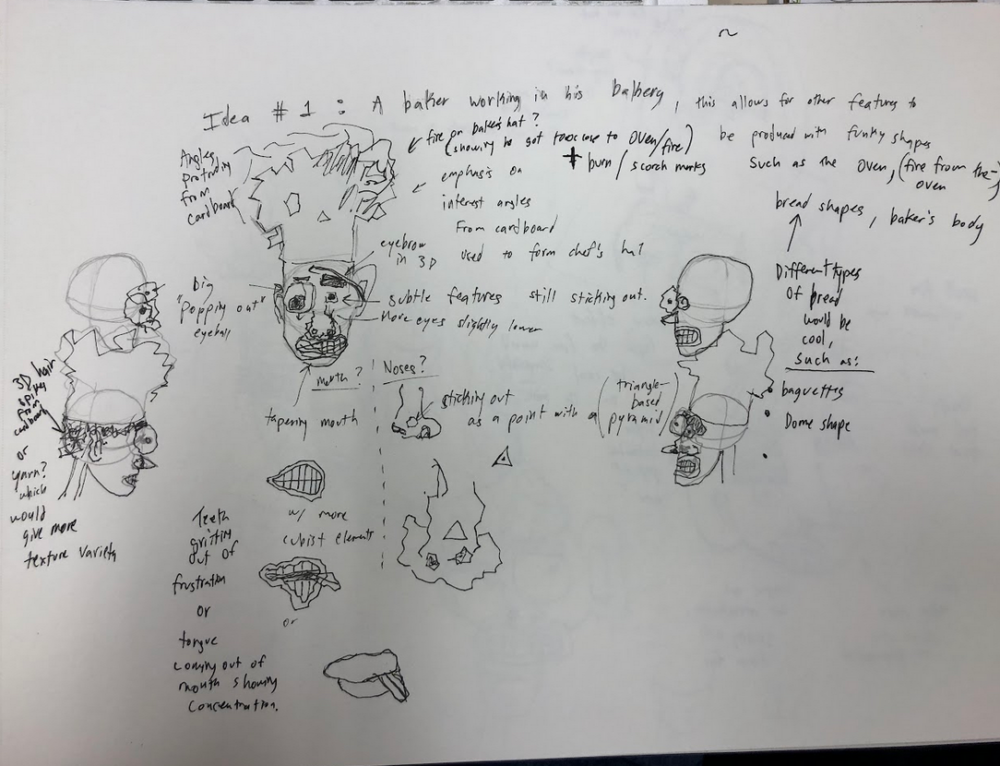 Idea # 1 : A baker working in his bakery, this allows for other features to
be produced with funky shapes
such as the oven, (fire from the oven)
bread shapes, baker's body
Angles
protruding
from
cardboard
fire on baker's hat?
(showing he got too close to oven/fire)
+ burn / scorch marks
emphasis on
interest angles
From cardboard
used to form chef's hat
eyebrow
in 3D
Big
"Popping out"
eyeball
subtle features still sticking out.
More eyes slightly lower
mouth?
tapering mouth
Noses?
sticking out
as a point with a (triangle-based pyramid)
Different types
of bread
would be
cool,
such as:
baguettes
Dome shape
3D hair
spikes
from
cardboard
or
yarn?
which
would
give more
texture variety
w/ more
cubist elements
Teeth
gritting
out of
frustration
or
or
tongue
coming out of
mouth showing
concentration.